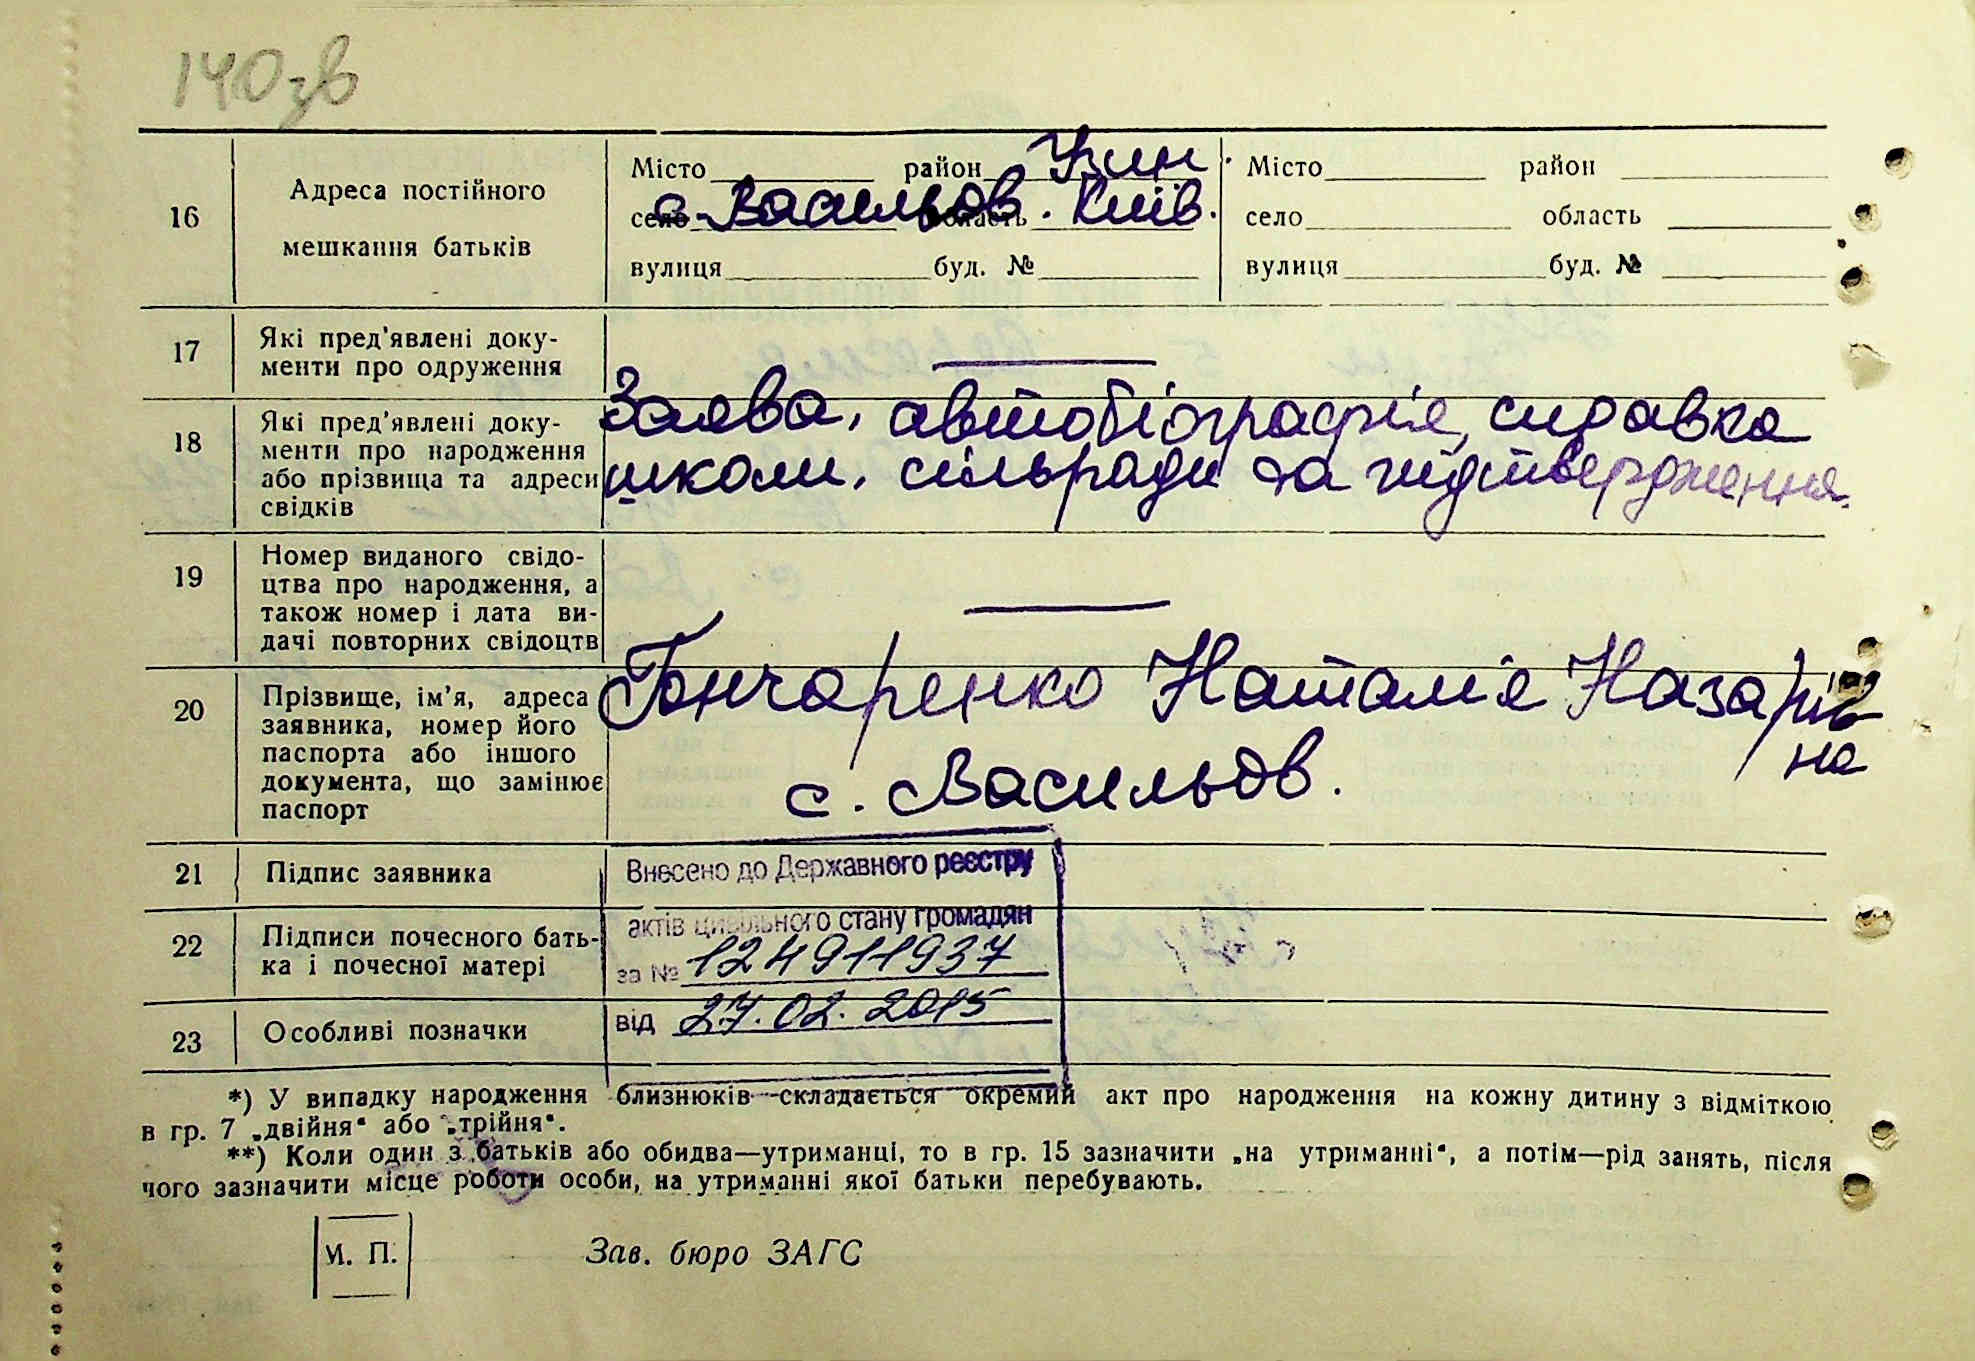 140зв
16
Адреса постійного
мешкання батьків
Місто район Узин.
село с. Васильов область. Київ.
вулиця буд. №
Місто район
село область
вулиця буд. №
17
Які пред'явлені доку-
менти про одруження
18
Які пред'явлені доку-
менти про народження
або прізвища та адреси
свідків
Заява, автобіографія, справка
школи, сільради та підтвердження.
19
Номер виданого свідо-
цтва про народження, а
також номер і дата ви-
дачі повторних свідоцтв
20
Прізвище, ім'я, адреса
заявника, номер його
паспорта або іншого
документа, що замінює
паспорт
Гончаренко Наталія Назарів
на
с. Васильов.
21
Підпис заявника
22
Підписи почесного бать-
ка і почесної матері
23
Особливі позначки
Внесено до Державного реєстру
актів цивільного стану громадян
за № 124911937
від 27.02.2015
*) У випадку народження близнюків складається окремий акт про народження на кожну дитину з відміткою
в гр. 7 „двійня“ або „трійня“.
**) Коли один з батьків або обидва—утриманці, то в гр. 15 зазначити „на утриманні“, а потім—рід занять, після
чого зазначити місце роботи особи, на утриманні якої батьки перебувають.
М. П.
Зав. бюро ЗАГС